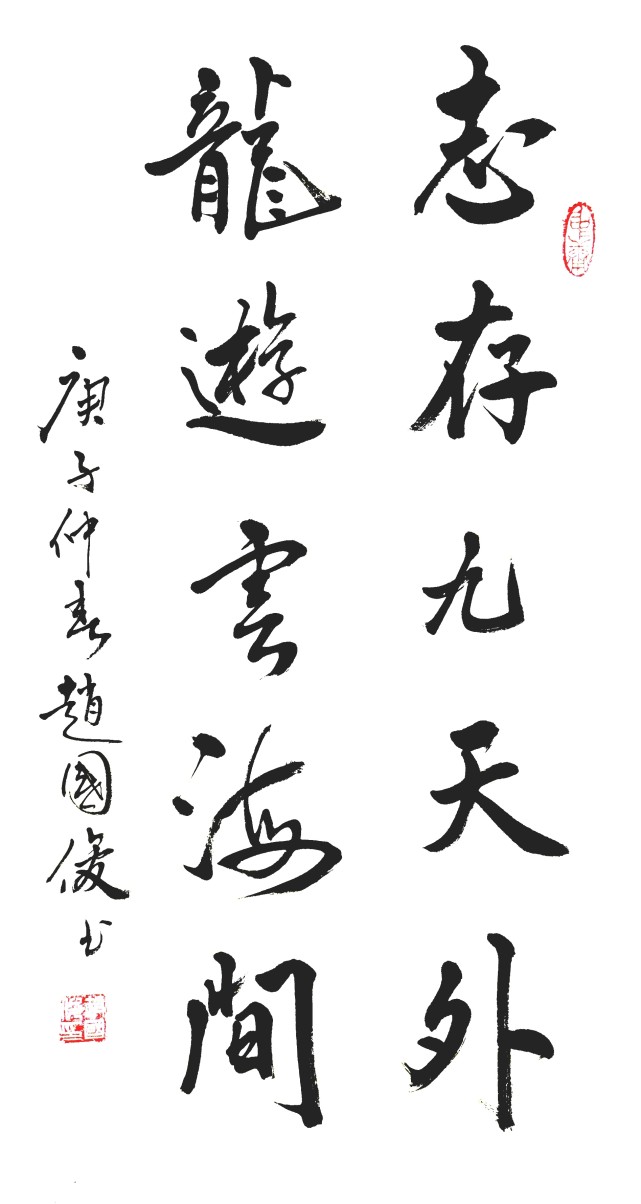 志存九天外
龍遊雲海間
庚子仲春趙國俊书